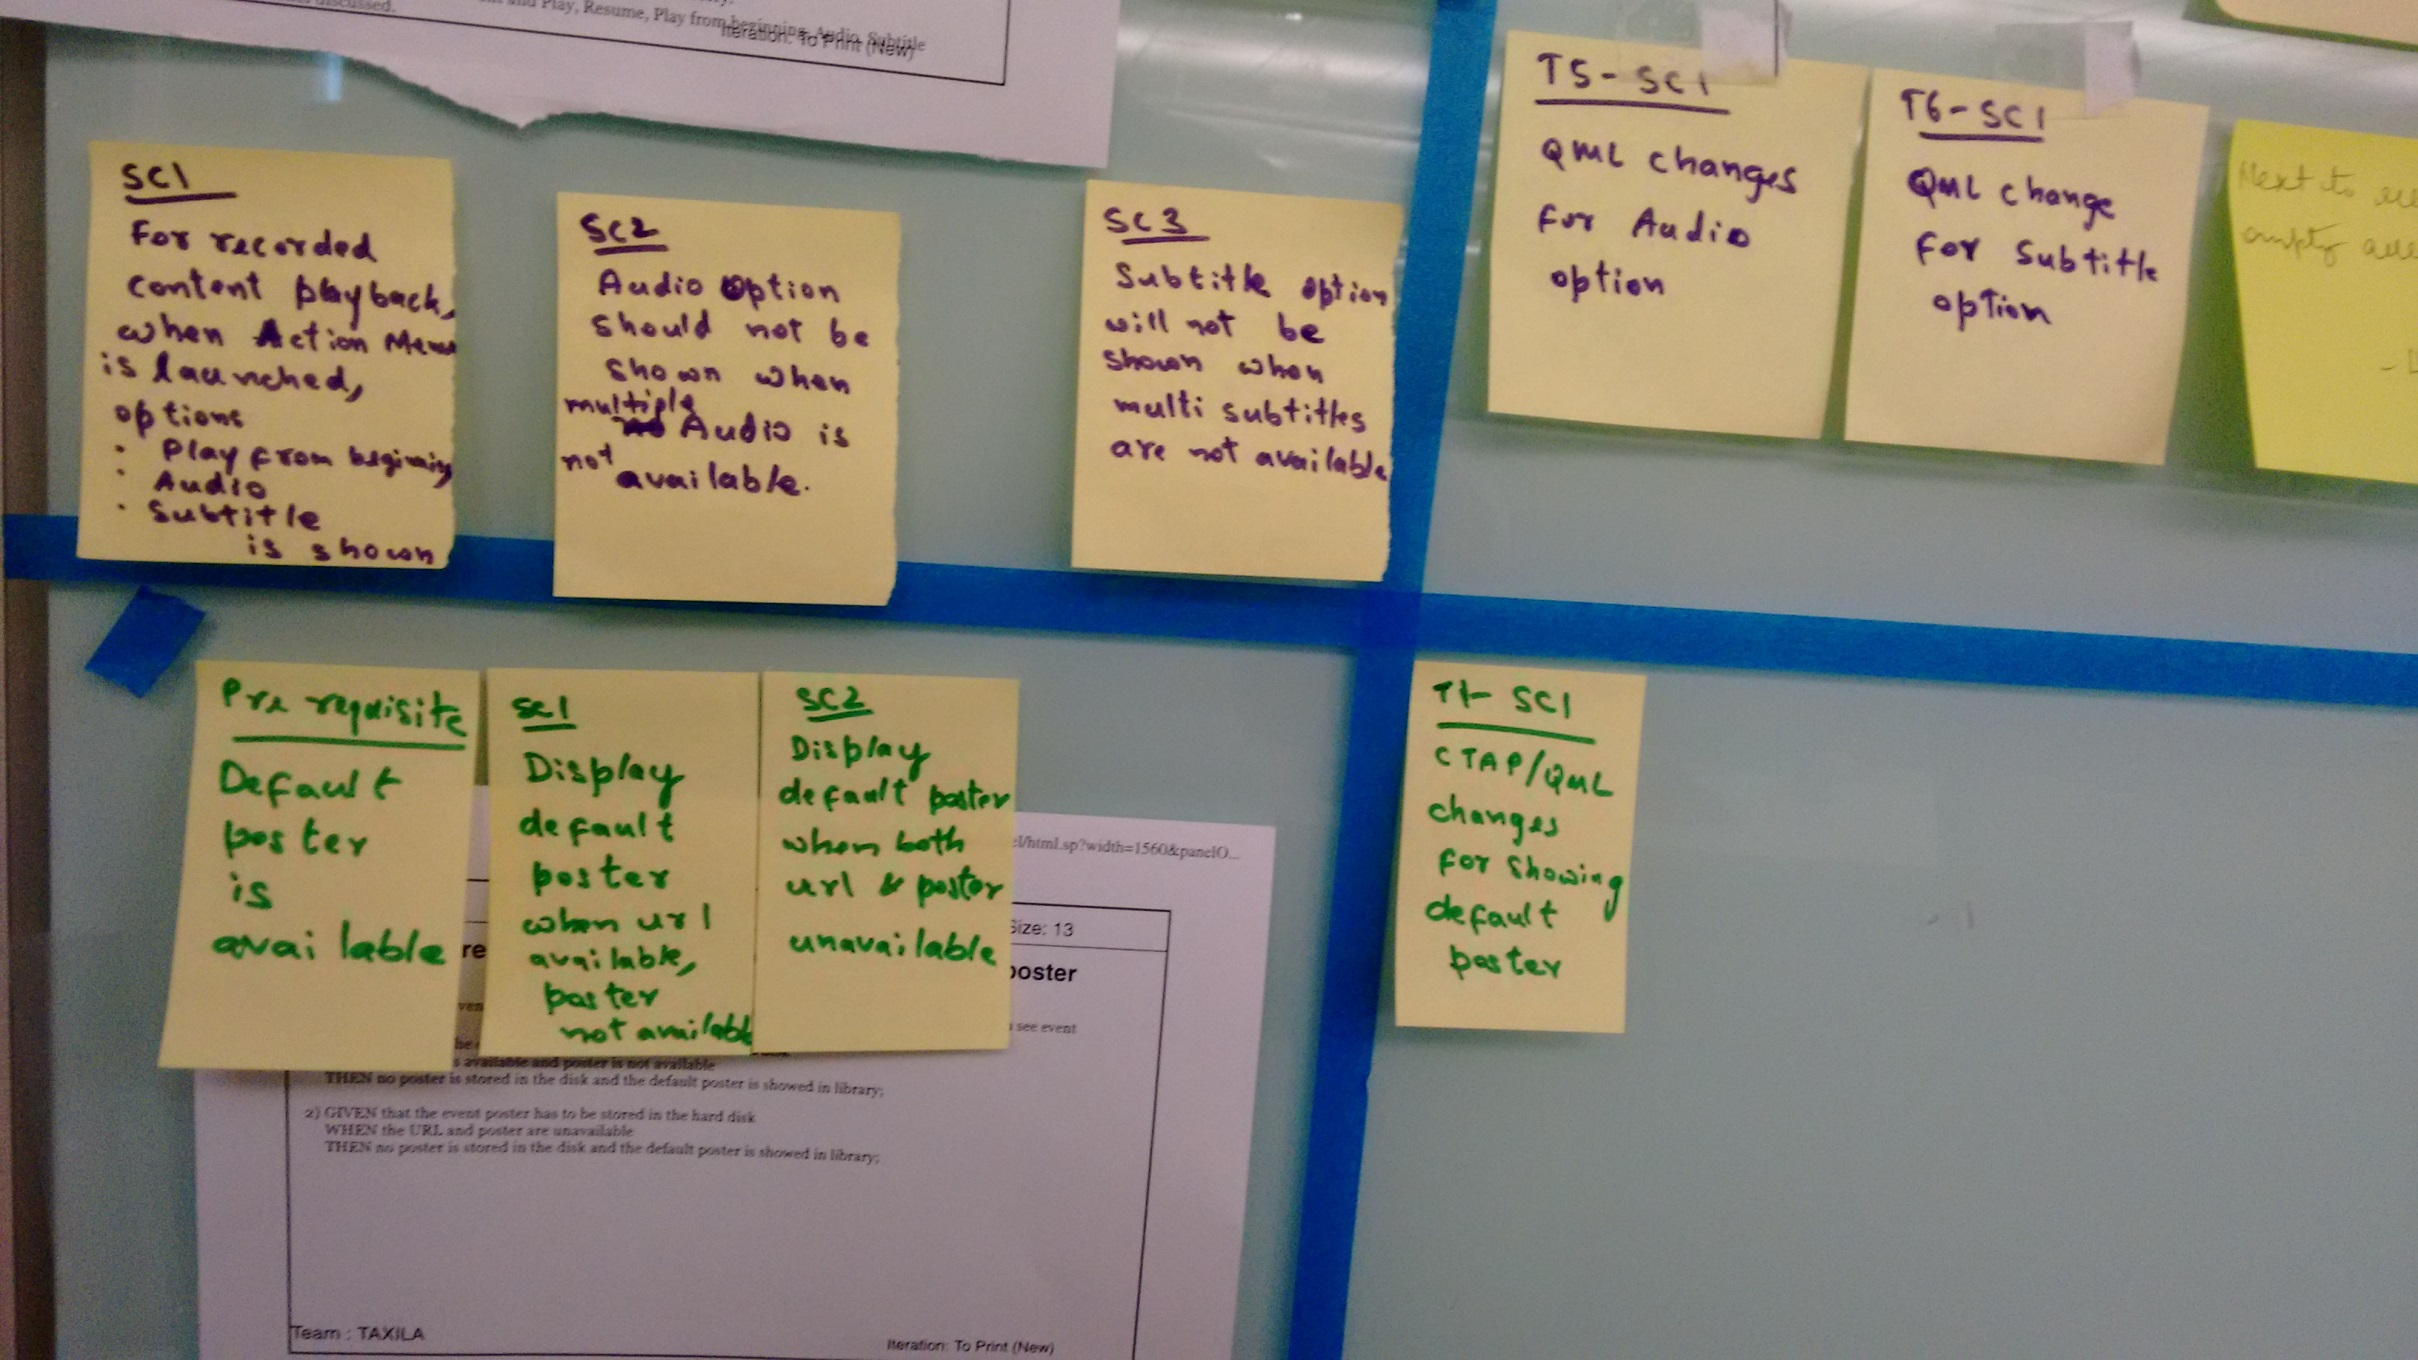 discussed.
and Play, Resume, Play from beginning, Audio, Subtitle
Iteration: To Print (New)
SC1
For recorded
content playback,
when Action Menu
is launched,
options
· Play from begining
· Audio
· Subtitle
is shown
SC2
Audio Option
should not be
shown when
multiple
no Audio is
not available.
SC3
Subtitle option
will not be
shown when
multi subtitles
are not available
T5- SC1
QML changes
for Audio
option
T6- SC1
QML change
for Subtitle
option
Next to
empty
Pre requisite
Default
poster
is
available
SC1
Display
default
poster
when url
available,
poster
not available
SC2
Display
default poster
when both
url & poster
unavailable
T1- SC1
CTAP/QML
changes
for showing
default
poster
el/html.sp?width=1560&panelO...
Size: 13
re
poster
see event
s available and poster is not available
THEN no poster is stored in the disk and the default poster is showed in library;
2) GIVEN that the event poster has to be stored in the hard disk
WHEN the URL and poster are unavailable
THEN no poster is stored in the disk and the default poster is showed in library;
Team : TAXILA
Iteration: To Print (New)